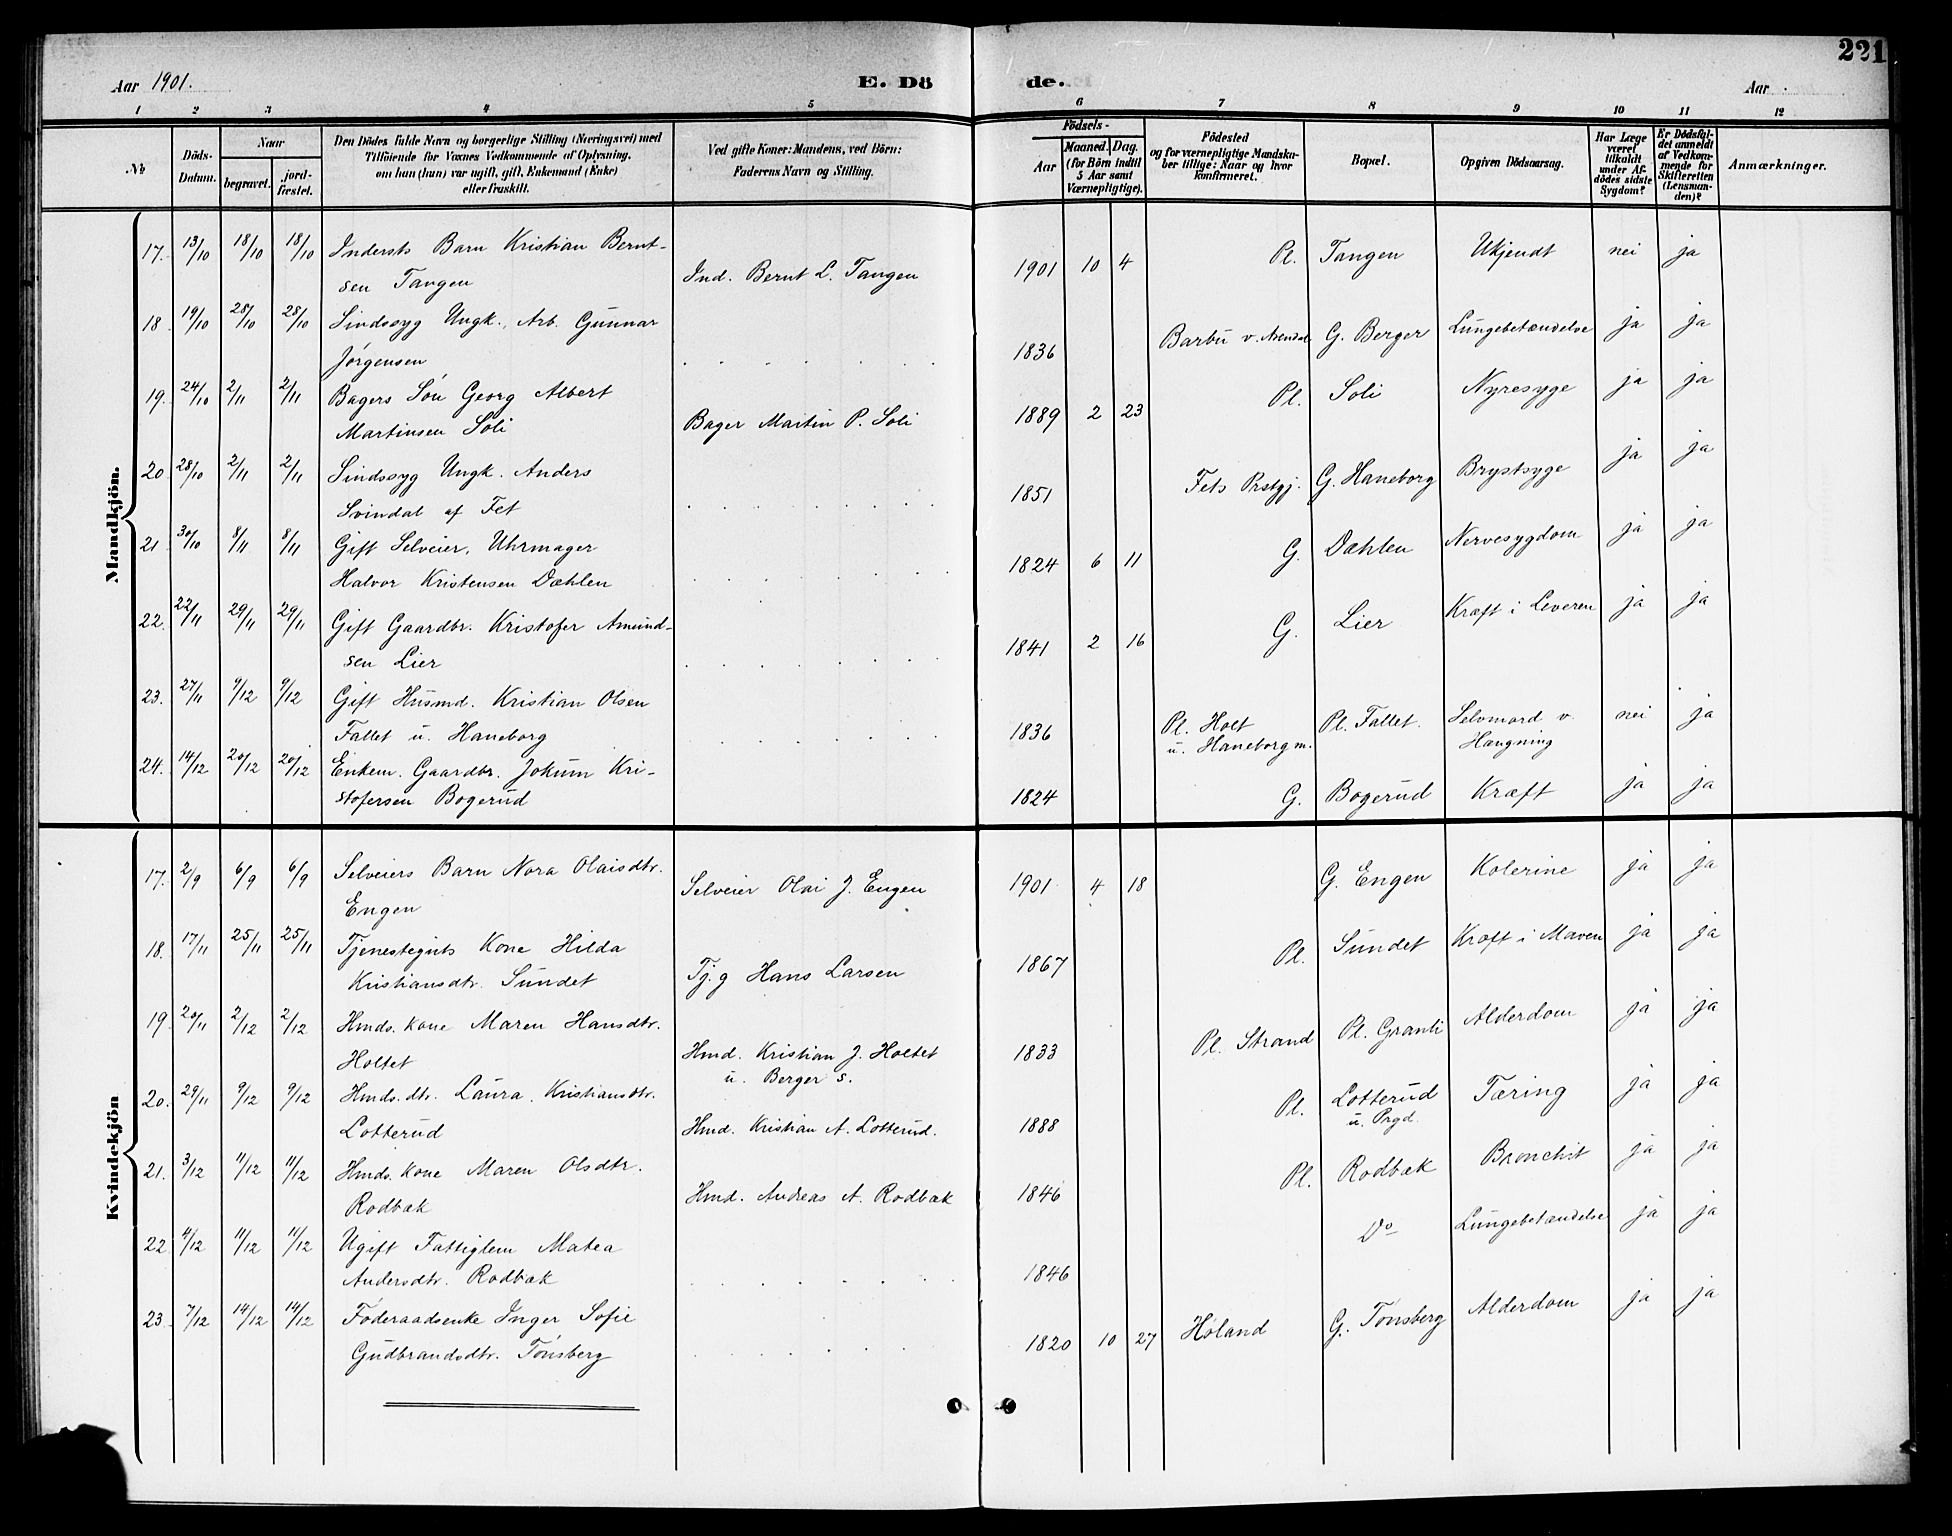 221
Aar 1901.
E. Dö
de.
Aar
1 2 3 4 5 6 7 8 9 10 11 12
No
Döds-
Datum.
Naar
begravet.
jord-
fæstet.
Den Dödes fulde Navn og borgerlige Stilling (Næringsvei) med
Tilföiende for Voxnes Vedkommende af Oplysning,
om han (hun) var ugift, gift, Enkemand (Enke)
eller fraskilt.
Ved gifte Koner: Mandens, ved Börn:
Faderens Navn og Stilling.
Födsels-
Aar
Maaned.
Dag.
(for Börn indtil
5 Aar samt
Værnepligtige).
Födested
og for værnepligtige Mandska-
ber tillige: Naar og hvor
konfirmeret.
Bopæl.
Opgiven Dödsaarsag.
Har Læge
været
tilkaldt
under Af-
dödes sidste
Sygdom?
Er Dödsfal-
det anmeldt
af Vedkom-
mende for
Skifteretten
(Lensman-
den)?
Anmærkninger.
Mandkjön.
17. 13/10 18/10 18/10 Indersts Barn Kristian Bernt-
sen Tangen Ind. Bernt L. Tangen 1901 10 4 Pl. Tangen Ukjendt nei ja
18 19/10 28/10 28/10 Sindssyg Ungk., Arb. Gunnar
Jørgensen 1836 Barbu v. Arendal G. Berger Lungebetændelse ja ja
19. 24/10 2/11 2/11 Bagers Søn Georg Albert
Martinsen Soli Bager Martin P. Soli 1889 2 23 Pl. Soli Nyresyge ja ja
20 28/10 2/11 2/11 Sindssyg Ungk. Anders
Svindal af Fet 1851 Fets Prstgj. G. Haneborg Brystsyge ja ja
21 30/10 8/11 8/11 Gift Selveier, Uhrmager
Halvor Kristensen Dæhlen 1824 6 11 G. Dæhlen Nervesygdom ja ja
22. 22/11 29/11 29/11 Gift Gaardbr. Kristofer Amund-
sen Lier 1841 2 16 G. Lier Kræft i Leveren ja ja
23. 27/11 9/12 9/12 Gift Husmd. Kristian Olsen
Fallet u. Haneborg 1836 Pl. Holt
u. Haneborg m. Pl. Fallet. Selvmord v.
Hængning nei ja
24. 14/12 20/12 20/12 Enkem. Gaardbr. Jokum Kri-
stofersen Bogerud 1824 G. Bogerud Kræft ja ja
Kvindekjön
17. 2/9 6/9 6/9 Selveiers Barn Nora Olaisdtr.
Engen Selveier Olai J. Engen 1901 4 18 G. Engen Kolerine ja ja
18. 17/11 25/11 25/11 Tjenesteguts Kone Hilda
Kristiansdtr. Sundet Tj.g Hans Larsen 1867 Pl. Sundet Kræft i Maven ja ja
19. 20/11 2/12 2/12 Hmds. kone Maren Hansdtr.
Holtet Hmd. Kristian J. Holtet
u. Berger s. 1833 Pl. Strand Pl. Granli Alderdom ja ja
20. 29/11 9/12 9/12 Hmds. dtr. Laura Kristiansdtr.
Lotterud Hmd. Kristian A. Lotterud. 1888 Pl. Lotterud
u. Prgd. Tæring ja ja
21. 3/12 11/12 11/12 Hmds. kone Maren Olsdtr.
Rodbæk Hmd. Andreas A. Rodbæk 1846 Pl. Rodbæk Bronchit ja ja
22. 4/12 11/12 11/12 Ugift Fattiglem Matea
Andersdtr. Rodbæk 1846 Do Lungebetændelse ja ja
23. 7/12 14/12 14/12 Føderaadsenke Inger Sofie
Gudbrandsdtr. Tønsberg 1820 10 27 Høland G. Tønsberg Alderdom ja ja